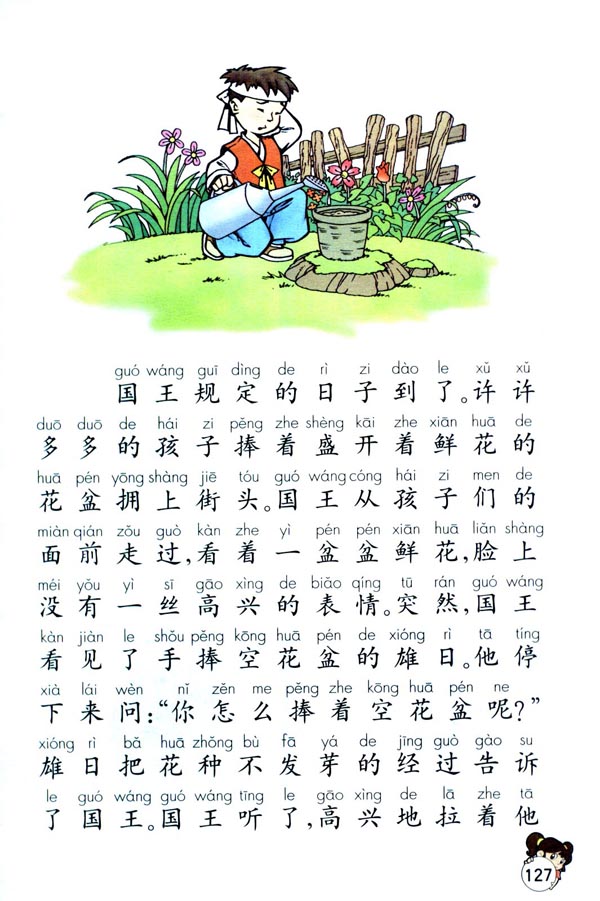 guó wáng guī dìng de rì zi dào le xǔ xǔ
国王规定的日子到了。许许
duō duō de hái zi pěng zhe shèng kāi zhe xiān huā de
多多的孩子捧着盛开着鲜花的
huā pén yōng shàng jiē tóu guó wáng cóng hái zi men de
花盆拥上街头。国王从孩子们的
miàn qián zǒu guò kàn zhe yì pén pén xiān huā liǎn shàng
面前走过,看着一盆盆鲜花,脸上
méi yǒu yì sī gāo xìng de biǎo qíng tū rán guó wáng
没有一丝高兴的表情。突然,国王
kàn jiàn le shǒu pěng kōng huā pén de xióng rì tā tíng
看见了手捧空花盆的雄日。他停
xià lái wèn nǐ zěn me pěng zhe kōng huā pén ne
下来问:“你怎么捧着空花盆呢?”
xióng rì bǎ huā zhǒng bù fā yá de jīng guò gào su
雄日把花种不发芽的经过告诉
le guó wáng guó wáng tīng le gāo xìng de lā zhe tā
了国王。国王听了,高兴地拉着他
127